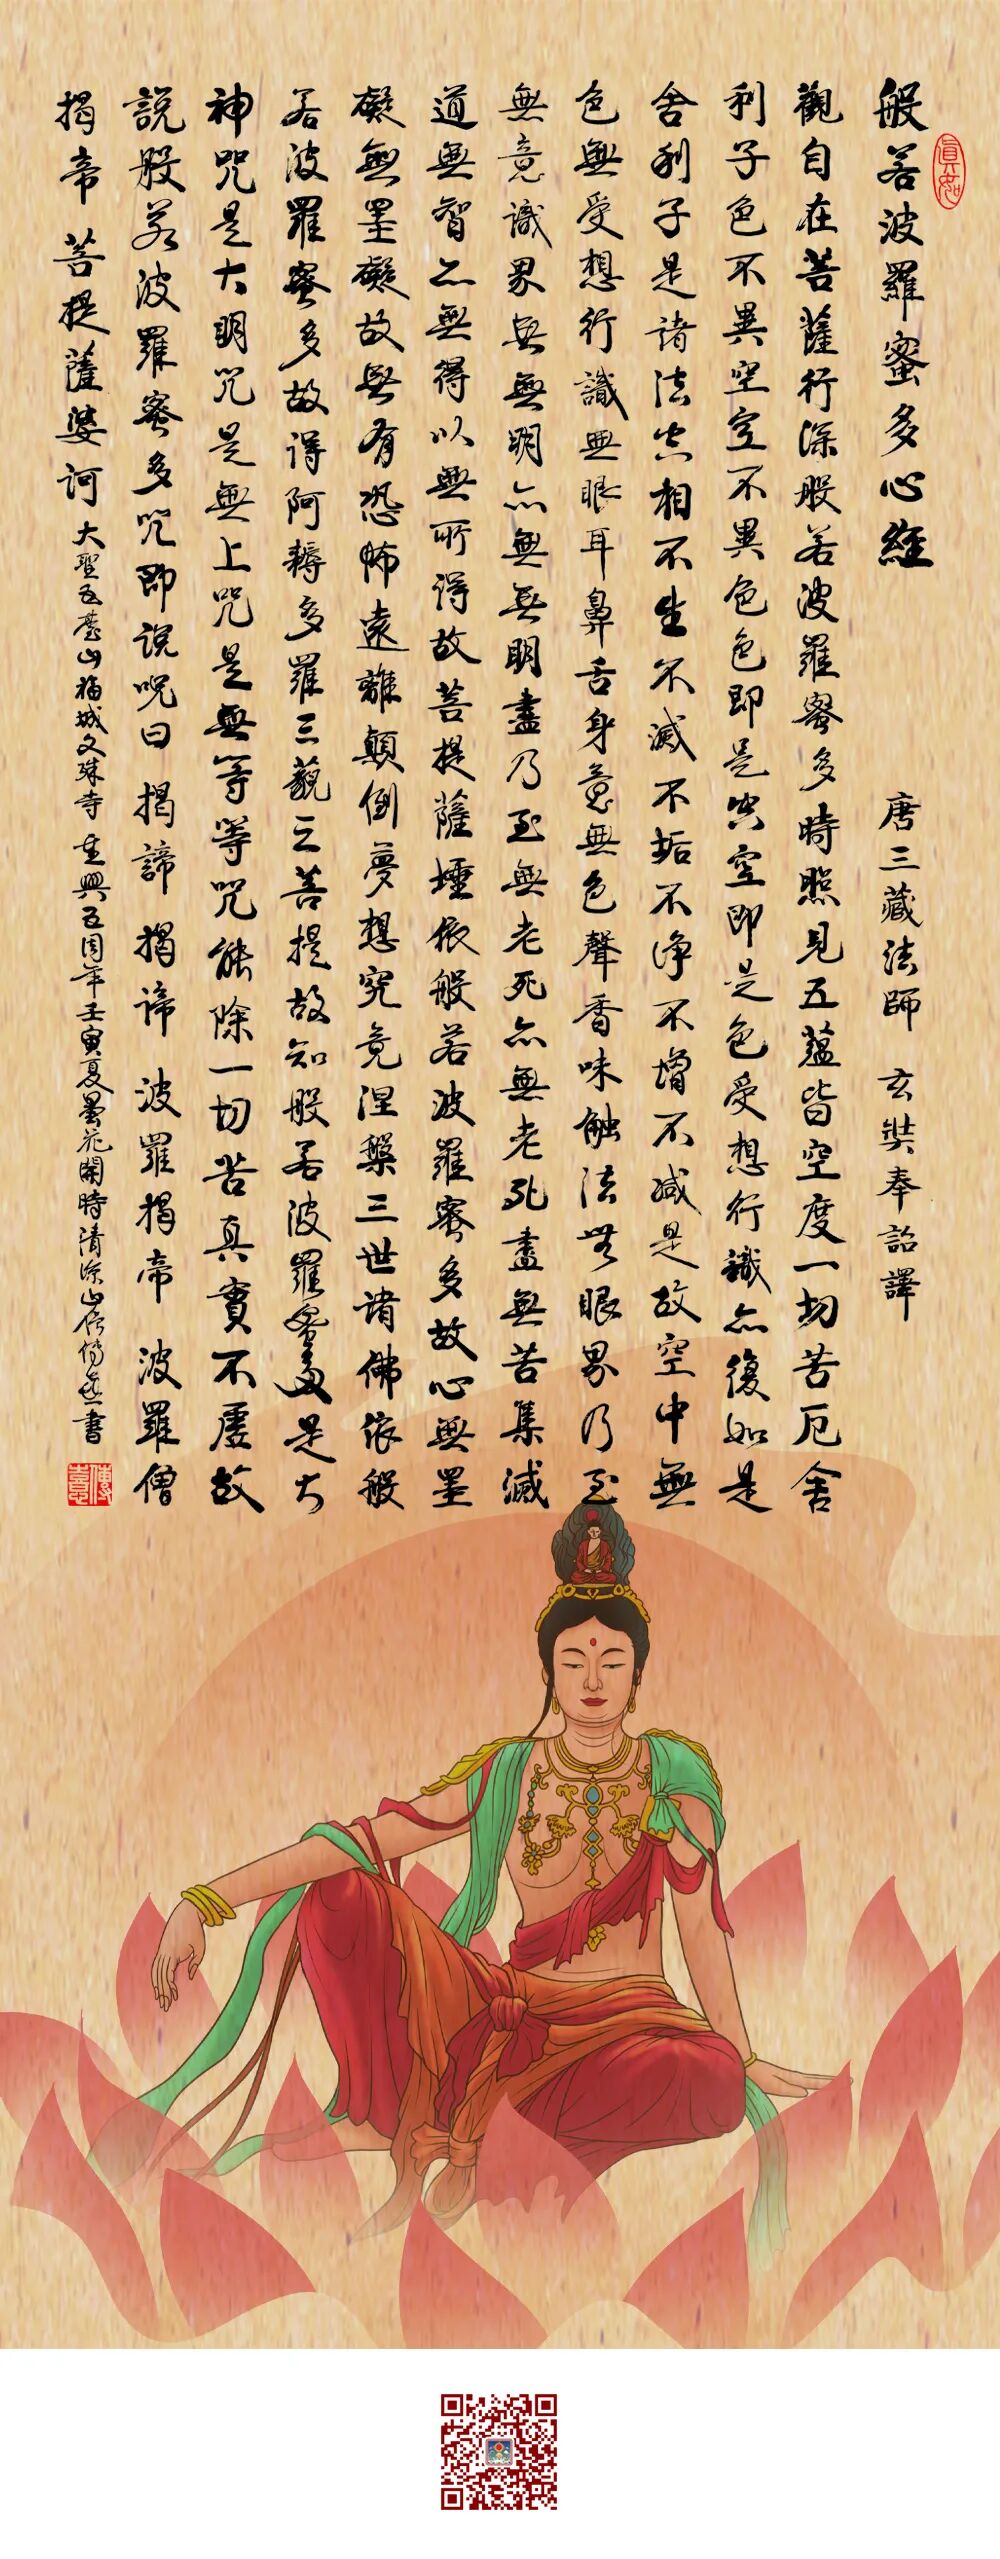 眞如
般若波羅蜜多心經 唐三藏法師 玄奘奉詔譯
觀自在菩薩行深般若波羅蜜多時照見五蘊皆空度一切苦厄舍
利子色不異空空不異色色即是空空即是色受想行識亦復如是
舍利子是諸法空相不生不滅不垢不淨不增不減是故空中無
色無受想行識無眼耳鼻舌身意無色聲香味触法無眼界乃至
無意識界無無明亦無無明盡乃至無老死亦無老死盡無苦集滅
道無智亦無得以無所得故菩提薩埵依般若波羅蜜多故心無罣
礙無罣礙故無有恐怖遠離顛倒夢想究竟涅槃三世諸佛依般
若波羅蜜多故得阿耨多羅三藐三菩提故知般若波羅蜜多是大
神咒是大明咒是無上咒是無等等咒能除一切苦真實不虛故
說般若波羅蜜多咒即說咒曰 揭諦 揭諦 波羅揭帝 波羅僧
揭帝 菩提薩婆訶
大聖五臺山福城文殊寺 重興五周年壬寅夏曇花開時清涼山僧傳意書
傳意